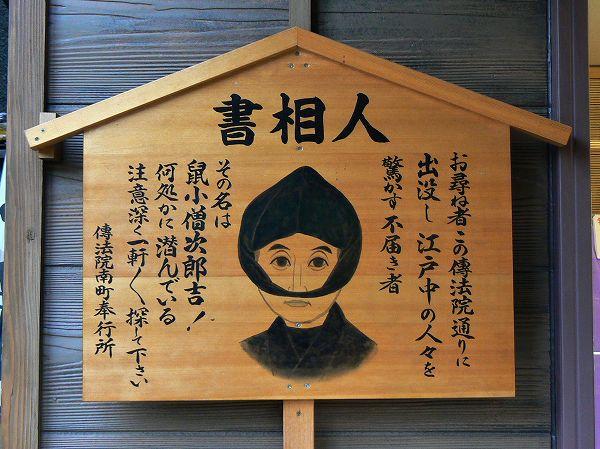 人相書
お尋ね者この傳法院通りに
出没し 江戸中の人々を
驚かす 不届き者
その名は
鼠小僧次郎吉！
何処かに潜んでいる
注意深く一軒〱探して下さい
傳法院南町奉行所